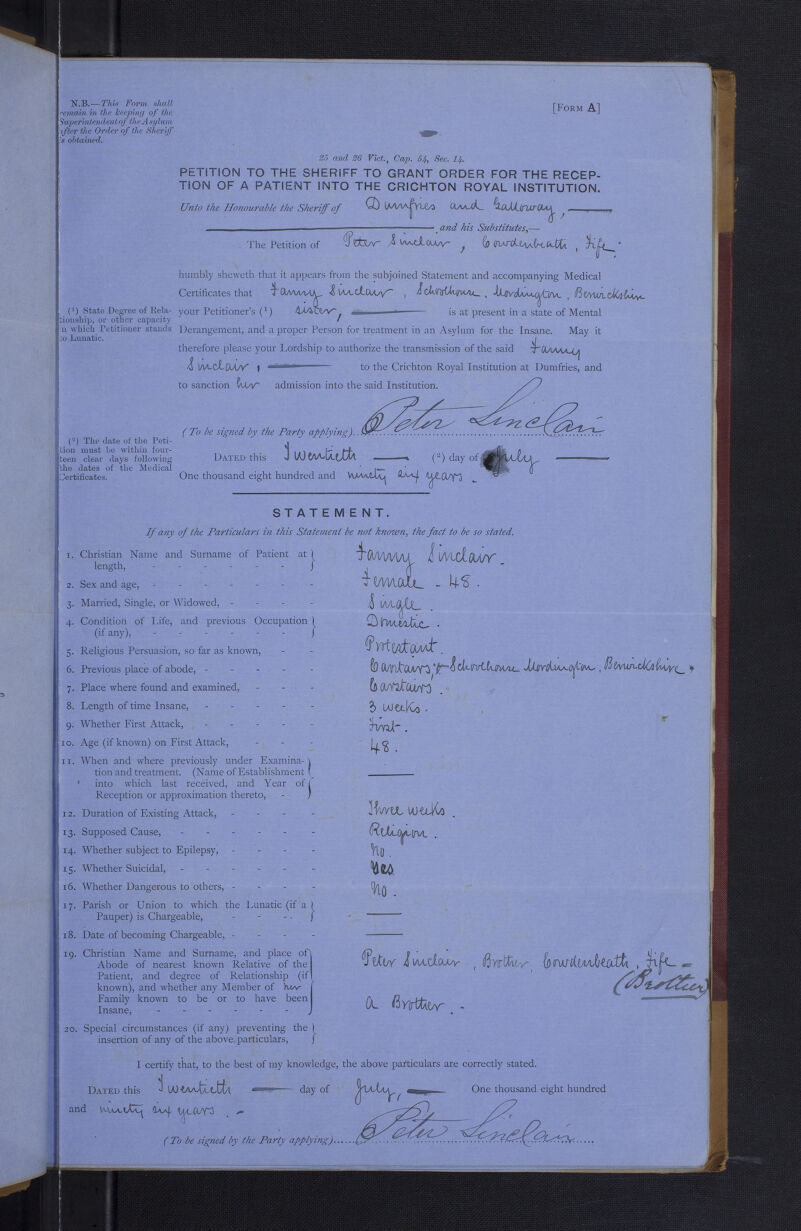 N.B.—This Form shall
remain in the keeping of the
Superintendent of the Asylum
after the Order of the Sheriff
is obtained.
[FORM A]
25 and 26 Vict., Cap. 54, Sec. 14.
PETITION TO THE SHERIFF TO GRANT ORDER FOR THE RECEP-
TION OF A PATIENT INTO THE CRICHTON ROYAL INSTITUTION.
Unto the Honourable the Sheriff of Dumfries and Galloway,
and his Substitutes,—
The Petition of Peter Sinclair, Cowdenbeath, Fife
humbly sheweth that it appears from the subjoined Statement and accompanying Medical
Certificates that Fanny Sinclair, Schoolhouse, Mordington, Berwickshire
(¹) State Degree of Rela-
tionship, or other capacity
in which Petitioner stands
to Lunatic.
your Petitioner's (¹) sister, is at present in a state of Mental
Derangement, and a proper Person for treatment in an Asylum for the Insane. May it
therefore please your Lordship to authorize the transmission of the said Fanny
Sinclair, to the Crichton Royal Institution at Dumfries, and
to sanction her admission into the said Institution.
(To be signed by the Party applying) Peter Sinclair
(²) The date of the Peti-
tion must be within four-
teen clear days following
the dates of the Medical
Certificates.
DATED this Twentieth (²) day of July
One thousand eight hundred and ninety six years.
STATEMENT.
If any of the Particulars in this Statement be not known, the fact to be so stated.
1. Christian Name and Surname of Patient at
length, - Fanny Sinclair.
2. Sex and age, - Female - 48.
3. Married, Single, or Widowed, - Single.
4. Condition of Life, and previous Occupation
(if any), - Domestic.
5. Religious Persuasion, so far as known, - Protestant.
6. Previous place of abode, - Carstairs, & Schoolhouse Mordington, Berwickshire
7. Place where found and examined, - Carstairs.
8. Length of time Insane, - 3 weeks.
9. Whether First Attack, - First.
10. Age (if known) on First Attack, - 48.
11. When and where previously under Examina-
tion and treatment. (Name of Establishment
into which last received, and Year of
Reception or approximation thereto, -
12. Duration of Existing Attack, - Three weeks.
13. Supposed Cause, - Religion.
14. Whether subject to Epilepsy, - No.
15. Whether Suicidal, - Yes
16. Whether Dangerous to others, - No.
17. Parish or Union to which the Lunatic (if a
Pauper) is Chargeable, -
18. Date of becoming Chargeable, -
19. Christian Name and Surname, and place of
Abode of nearest known Relative of the
Patient, and degree of Relationship (if
known), and whether any Member of her
Family known to be or to have been
Insane, -
Peter Sinclair, Brother, Cowdenbeath, Fife -
(Brother)
a Brother. -
20. Special circumstances (if any) preventing the
insertion of any of the above particulars,
I certify that, to the best of my knowledge, the above particulars are correctly stated.
DATED this Twentieth day of July, One thousand eight hundred
and ninety six years. -
(To be signed by the Party applying) Peter Sinclair